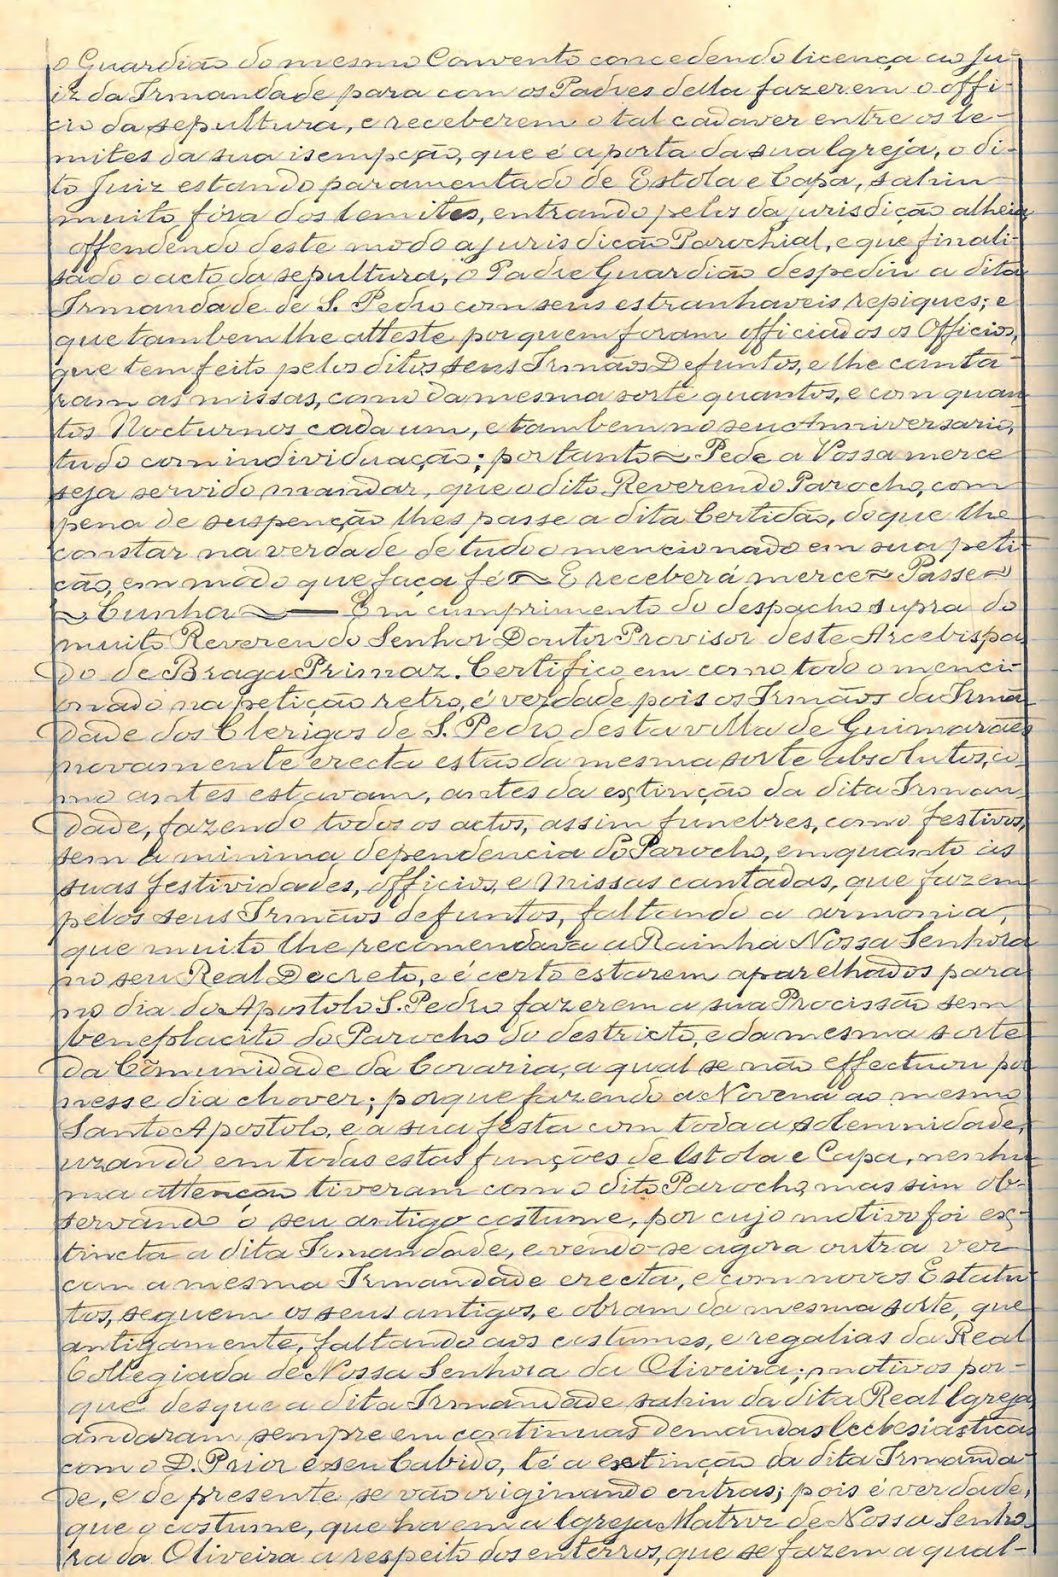 o Guardião do mesmo Convento concedendo licença ao Ju-
iz da Irmandade para com os Padres della fazerem o offi-
cio da sepultura, e receberem o tal cadaver entre os le-
mites da sua isempção, que é a porta da sua Igreja, o di-
to Juiz estando paramentado de Estola e Capa, sahiu
muito fóra dos lemites, entrando pelos da jurisdição alheia
offendendo deste modo a jurisdição Parochial, e que finali-
sado o acto da sepultura, o Padre Guardião despediu a dita
Irmandade de S. Pedro com seus estranhaveis repiques; e
que tambem lhe atteste por quem foram officiados os Officios,
que tem feito pelos ditos seus Irmãos Defuntos, e lhe canta-
ram as missas, como da mesma sorte quantos, e com quan-
tos Nocturnos cada um, e tambem no seu Anniversario,
tudo com individuação; portanto ~ Pede a Vossa merce
seja servido mandar, que o dito Reverendo Parocho, com
pena de suspenção lhes passe a dita Certidão, do que lhe
constar na verdade de tudo o mencionado em sua peti-
ção, em modo que faça fé ~ E receberá merce ~ Passe ~
~ Cunha ~ — Em cumprimento do despacho supra do
muito Reverendo Senhor Doutor Provisor deste Arcebispa
do de Braga Primaz. Certifico em como todo o menci-
onado na petição retro, é verdade pois os Irmãos da Irma
dade dos Clerigos de S. Pedro desta villa de Guimarães
novamente erecta estão da mesma sorte absolutos, co-
mo antes estavam, antes da extinção da dita Irman-
dade, fazendo todos os actos, assim funebres, como festivos,
sem a minima dependencia do Parocho, emquanto ás
suas festividades, officios, e Missas cantadas, que fazem
pelos seus Irmãos defuntos, faltando a armonia,
que muito lhe recomendava a Rainha Nossa Senhora
no seu Real Decreto, e é certo estarem aparelhados para
no dia do Apostolo S. Pedro fazerem a sua Procissão sem
beneplacito do Parocho do destricto, e da mesma sorte
da Cõmunidade da Costaria, a qual se não effectuou por
nesse dia chover; porque fazendo a Novena ao mesmo
Santo Apostolo, e a sua festa com toda a solemnidade,
uzando em todas estas funções de Estola e Capa, nenhu
ma attenção tiveram com o dito Parocho, mas sim ob-
servando o seu antigo costume, por cujo motivo foi ex-
tincta a dita Irmandade, e vendo-se agora outra vez
com a mesma Irmandade erecta, e com novos Estatu
tos, seguem os seus antigos, e obram da mesma sorte, que
antigamente, faltando aos costumes, e regalias da Real
Collegiada de Nossa Senhora da Oliveira; motivos por-
que desque a dita Irmandade sahiu da dita Real Igreja
andaram sempre em continuas demandas Ecclesiasticas
com o D. Prior e seu Cabido, té a extinção da dita Irmanda-
de, e de presente se vão originando outras; pois é verdade,
que o costume, que ha em a Igreja Matriz de Nossa Senho-
ra da Oliveira a respeito dos enterros, que se fazem a qual-